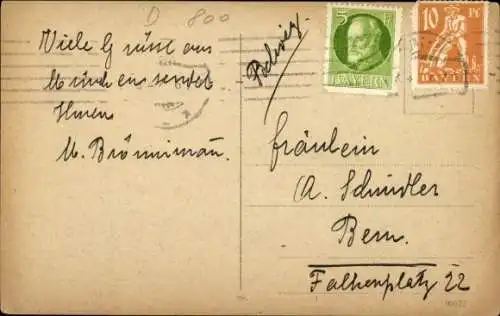 D 800
Viele Grüsse aus
München sendet
Ihnen
M. Brönnimann.
5
BAYERN
10 Pf
BAYERN
Fräulein
A. Schindler
Bern.
Falkenplatz 22